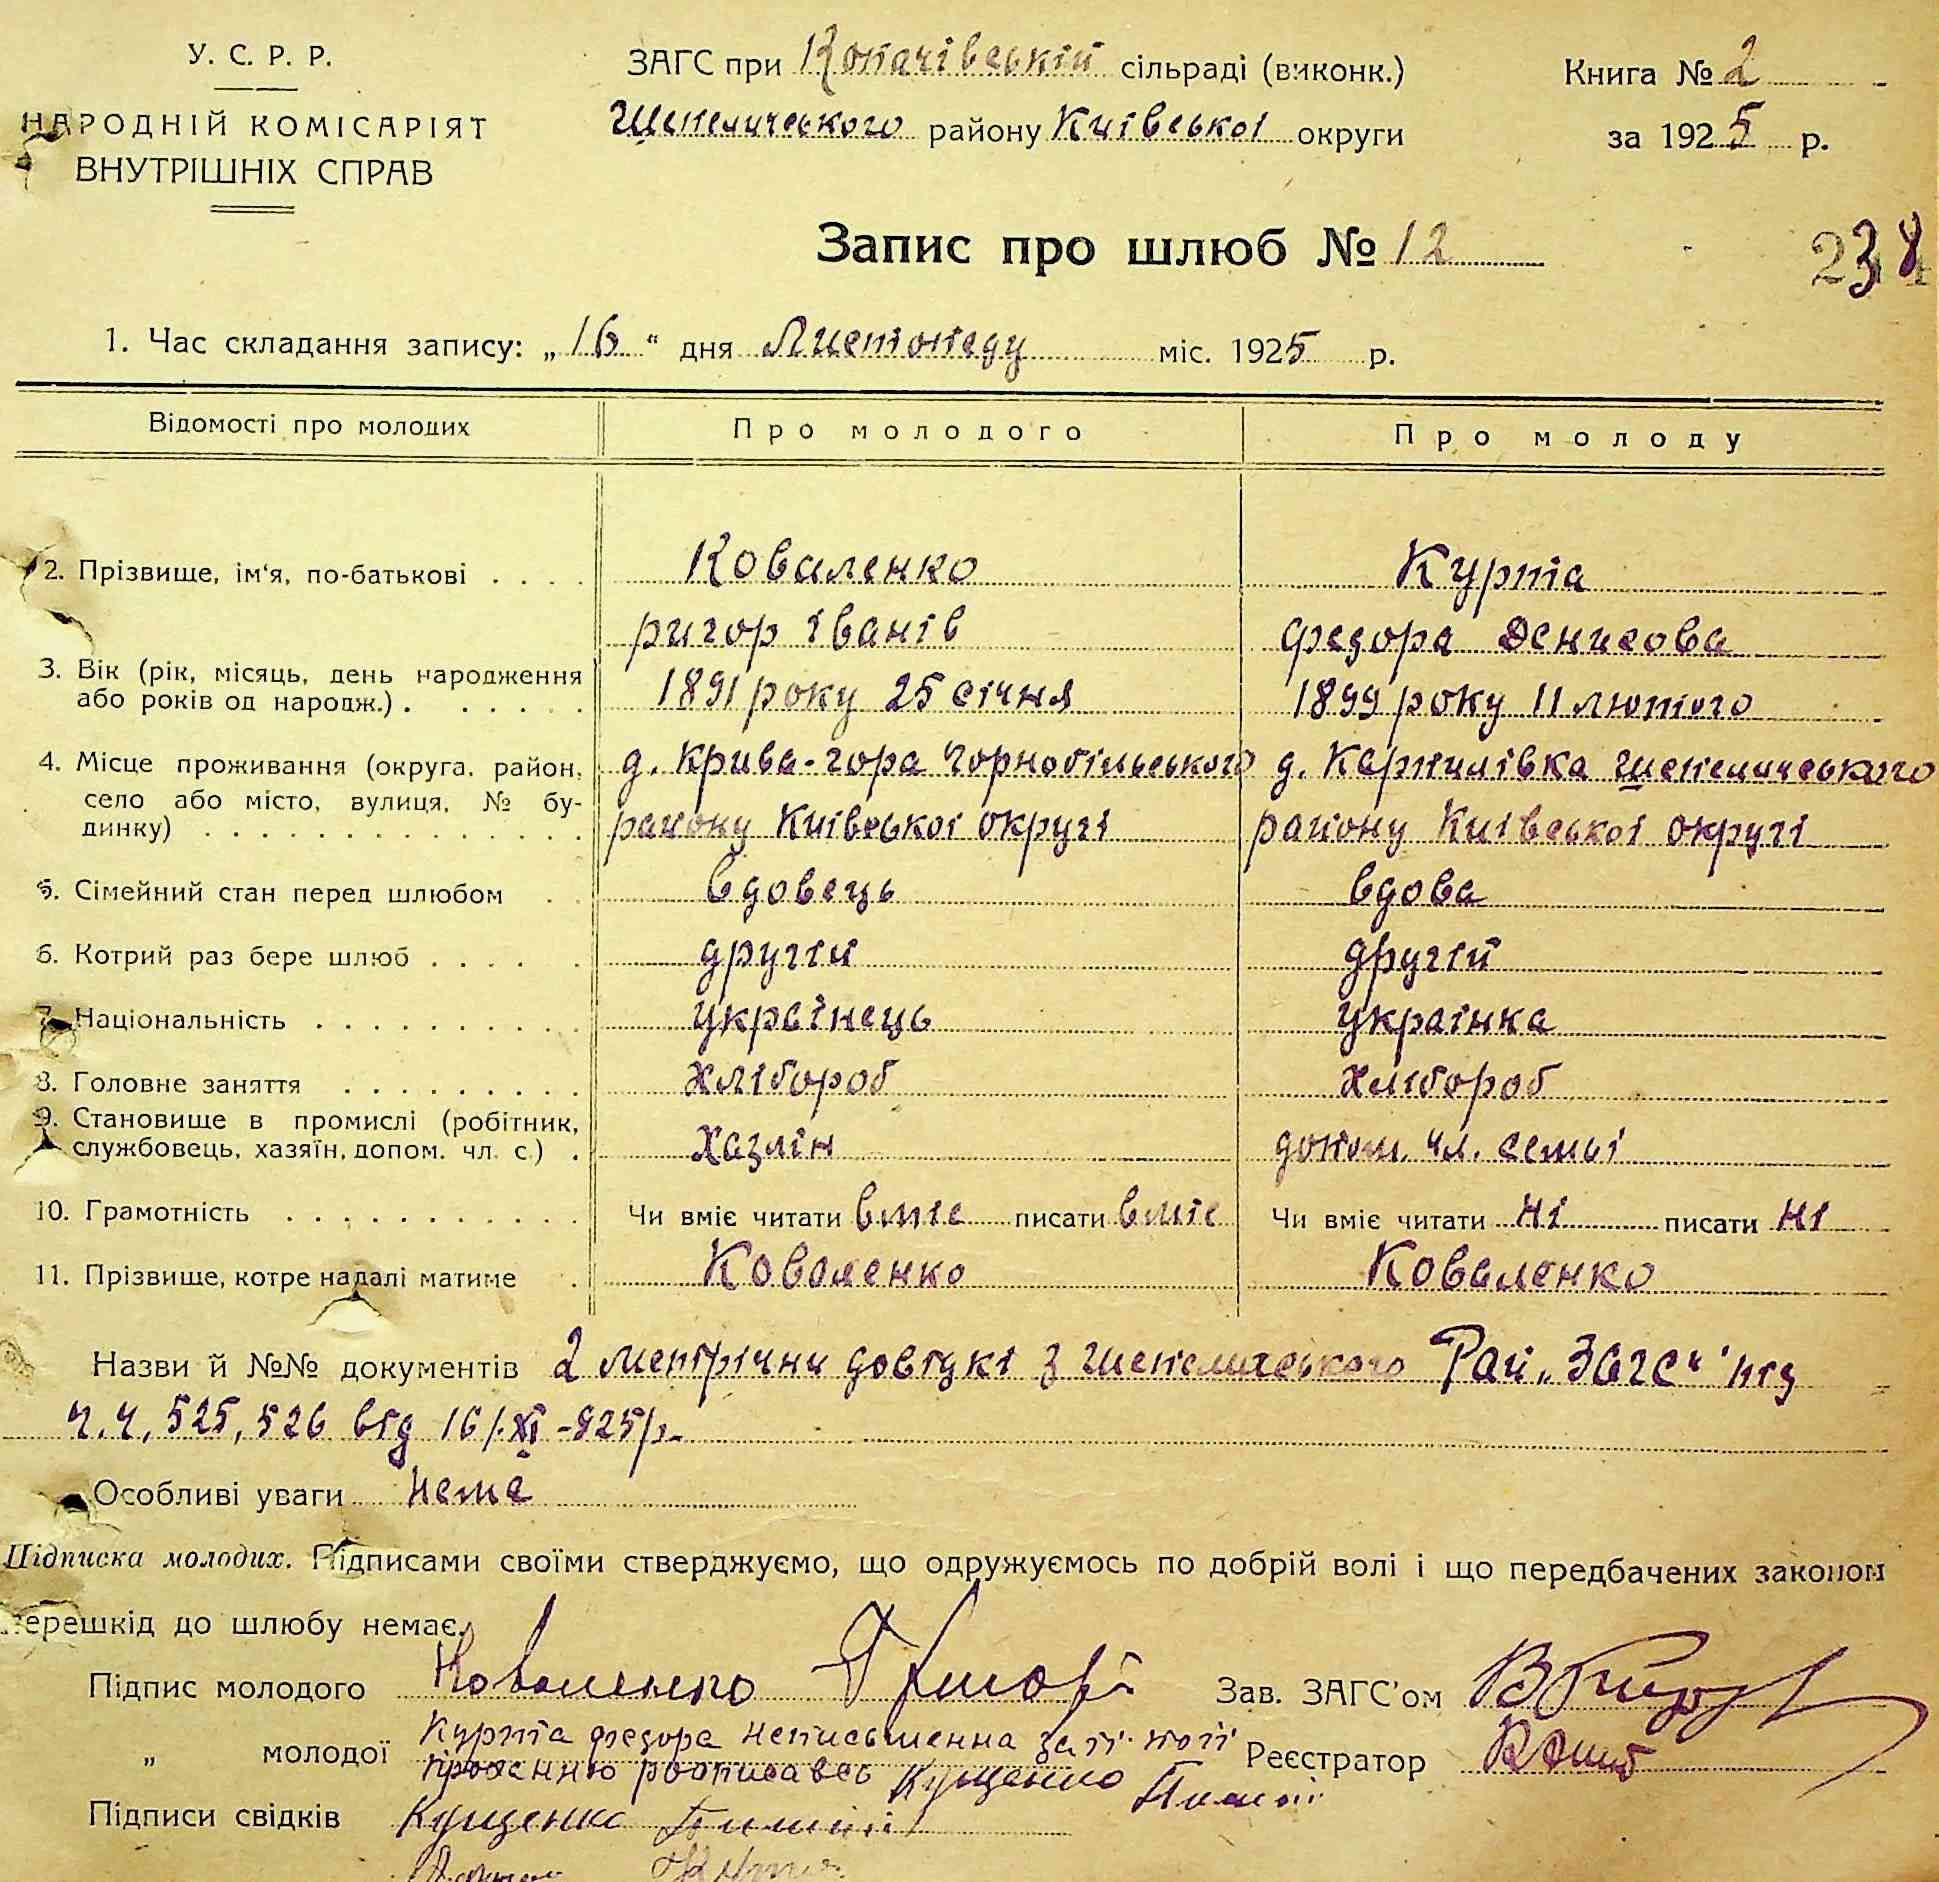 У. С. Р. Р.
НАРОДНІЙ КОМІСАРІЯТ
ВНУТРІШНІХ СПРАВ
ЗАГС при Копачівській сільраді (виконк.)
Шепелицького району Київської округи
Книга № 2
за 1925 р.
Запис про шлюб № 12
1. Час складання запису: „16“ дня Листопаду міс. 1925 р.
Відомості про молодих Про молодого Про молоду
2. Прізвище, ім'я, по-батькові Коваленко Курпта
ригор іванів федора Денисова
3. Вік (рік, місяць, день народження
або років од народж.) 1891 року 25 січня 1899 року 11 лютого
4. Місце проживання (округа, район, д. Крива-гора Чорнобільського д. Карпилівка Шепелицького
село або місто, вулиця, № бу-
динку) району Київської округі району Київської округі
5. Сімейний стан перед шлюбом вдовець вдова
6. Котрий раз бере шлюб другій другій
7. Національність українець українка
8. Головне заняття хлібороб хлібороб
9. Становище в промислі (робітник,
службовець, хазяїн, допом. чл. с.) хазяін допом. чл. семьі
10. Грамотність Чи вміє читати вміє писати вміє Чи вміє читати ні писати ні
11. Прізвище, котре надалі матиме Коваленко Коваленко
Назви й №№ документів 2 метрічни довідкі з Шепелицького Рай „ЗАГС“ під
ч.ч. 525, 526 від 16/XI-925 р.
Особливі уваги нема
Підписка молодих. Підписами своїми стверджуємо, що одружуємось по добрій волі і що передбачених законом
перешкід до шлюбу немає.
Підпис молодого Коваленко Григорі Зав. ЗАГС'ом
„ молодої федора неписьменна за її
проханню росписавсь Кущенко Реєстратор
Підписи свідків Кущенко